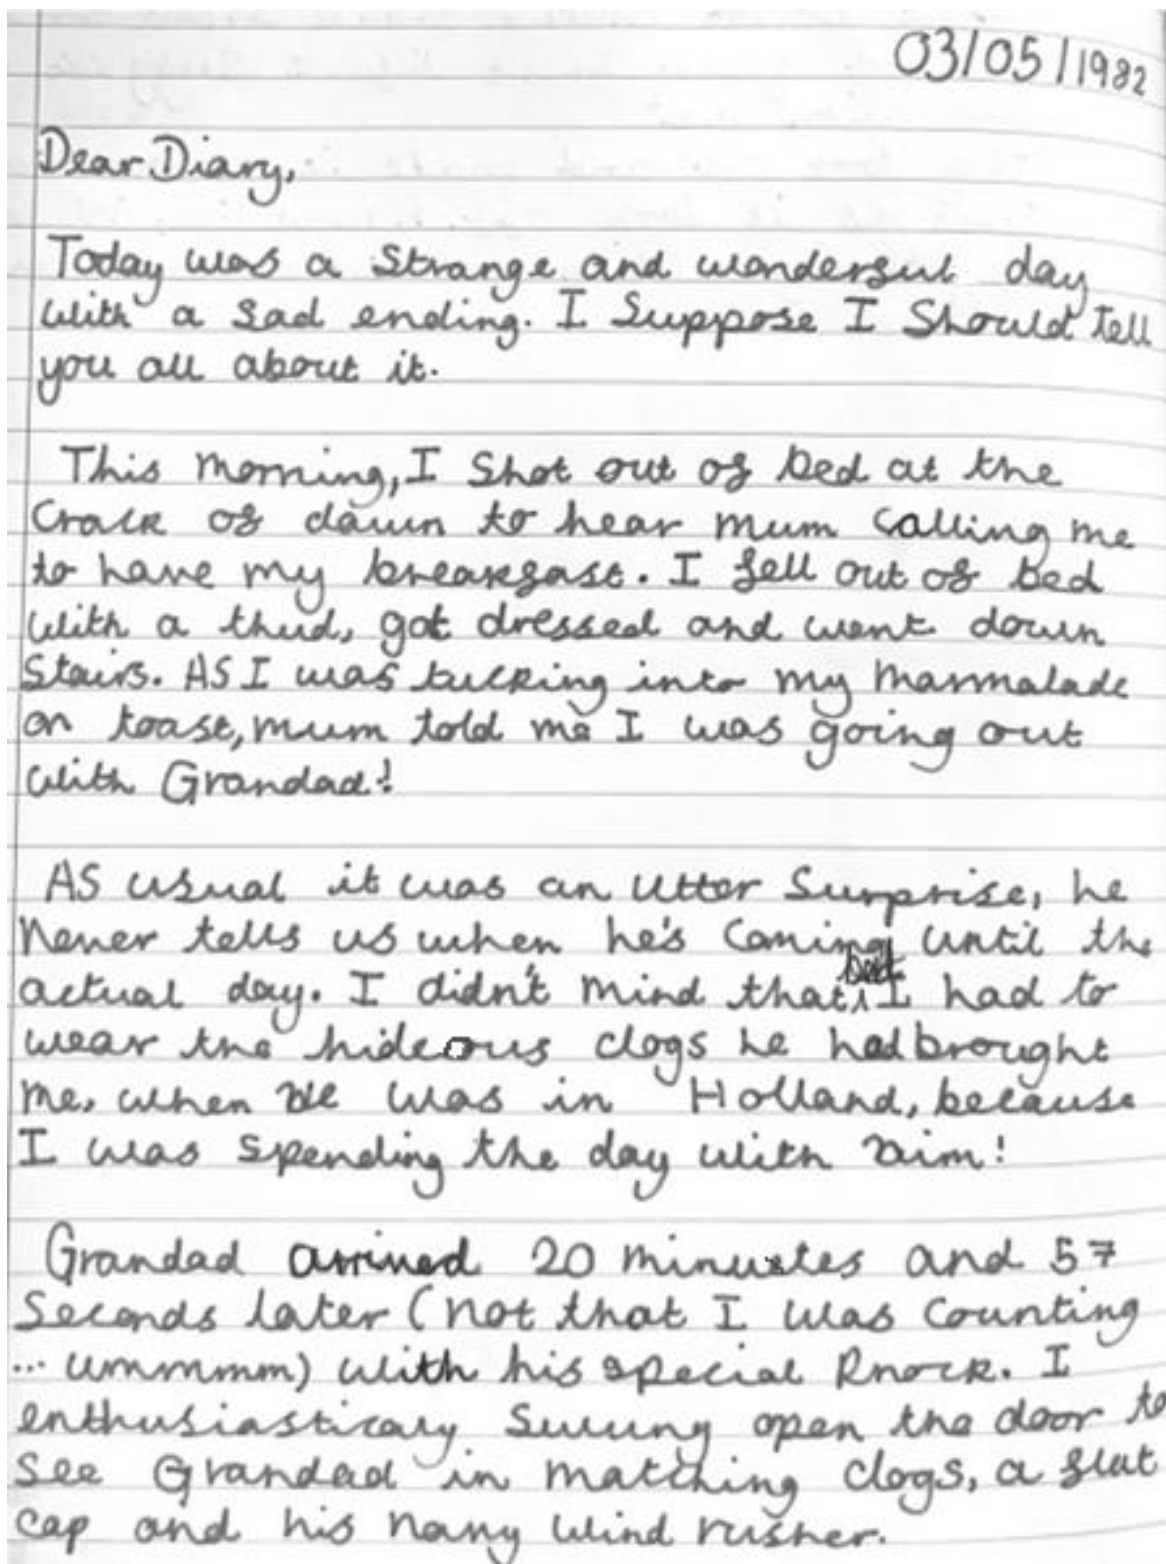 03/05/1982
Dear Diary,
Today was a strange and wonderful day
with a sad ending. I suppose I should tell
you all about it.
This morning, I shot out of bed at the
crack of dawn to hear mum calling me
to have my breakfast. I fell out of bed
with a thud, got dressed and went down
stairs. As I was tucking into my marmalade
on toast, mum told me I was going out
with Grandad!
As usual it was an utter surprise, he
never tells us when he's coming until the
actual day. I didn't mind that I had to
wear the hideous clogs he had brought
me, when he was in Holland, because
I was spending the day with him!
Grandad arrived 20 minutes and 57
seconds later (not that I was counting
... ummmm) with his special knock. I
enthusiasticaly swung open the door to
see Grandad in matching clogs, a flat
cap and his navy wind rusher.